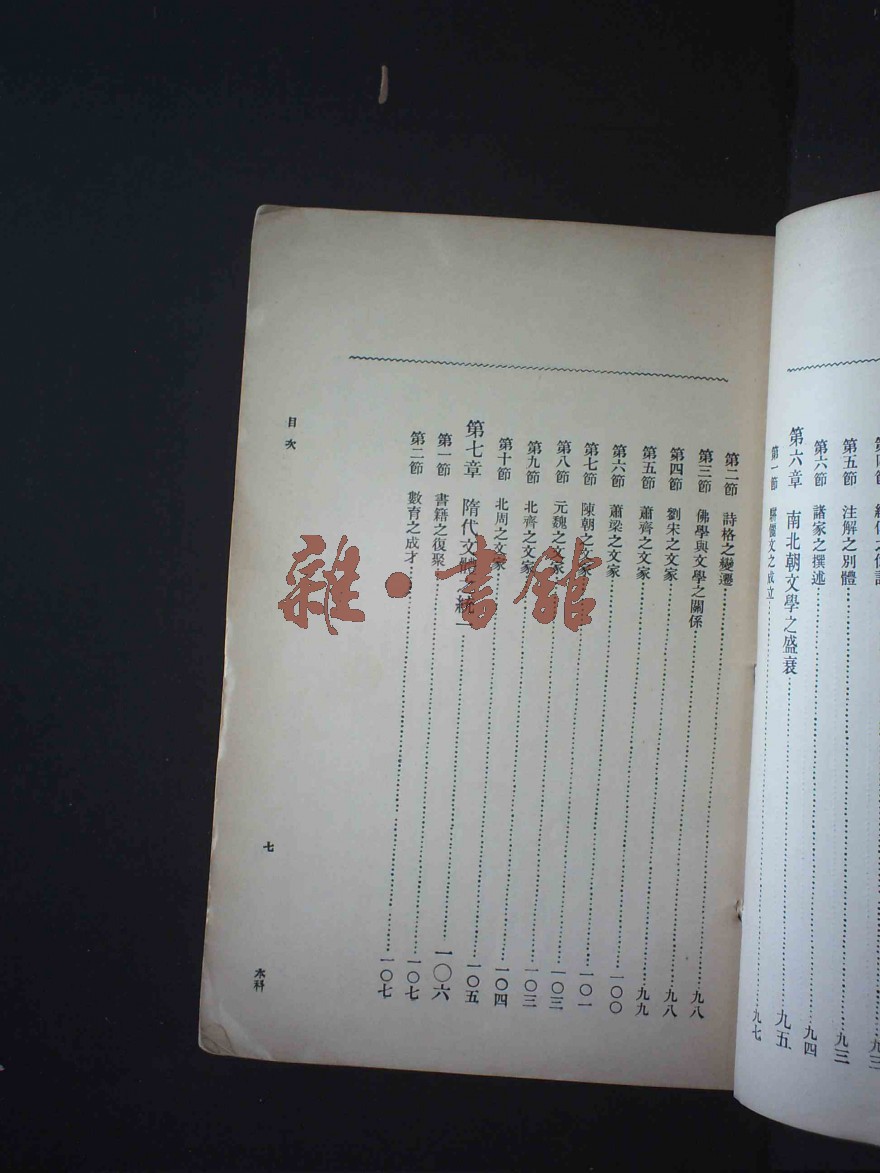 第五節 注解之別體 九三
第六節 諸家之撰述 九四
第六章 南北朝文學之盛衰 九五
第一節 駢儷文之成立 九七
第二節 詩格之變遷 九八
第三節 佛學與文學之關係 九八
第四節 劉宋之文家 九九
第五節 蕭齊之文家 一〇〇
第六節 蕭梁之文家 一〇一
第七節 陳朝之文家 一〇三
第八節 元魏之文家 一〇三
第九節 北齊之文家 一〇四
第十節 北周之文家 一〇五
第七章 隋代文體之統一 一〇六
第一節 書籍之復聚 一〇七
第二節 敎育之成才 一〇七
目次
七
本科
雜·書館